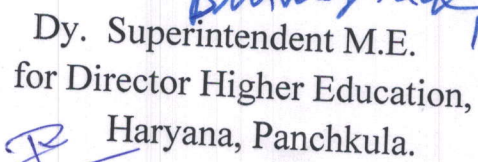 Dy. Superintendent M.E.
for Director Higher Education,
Haryana, Panchkula.